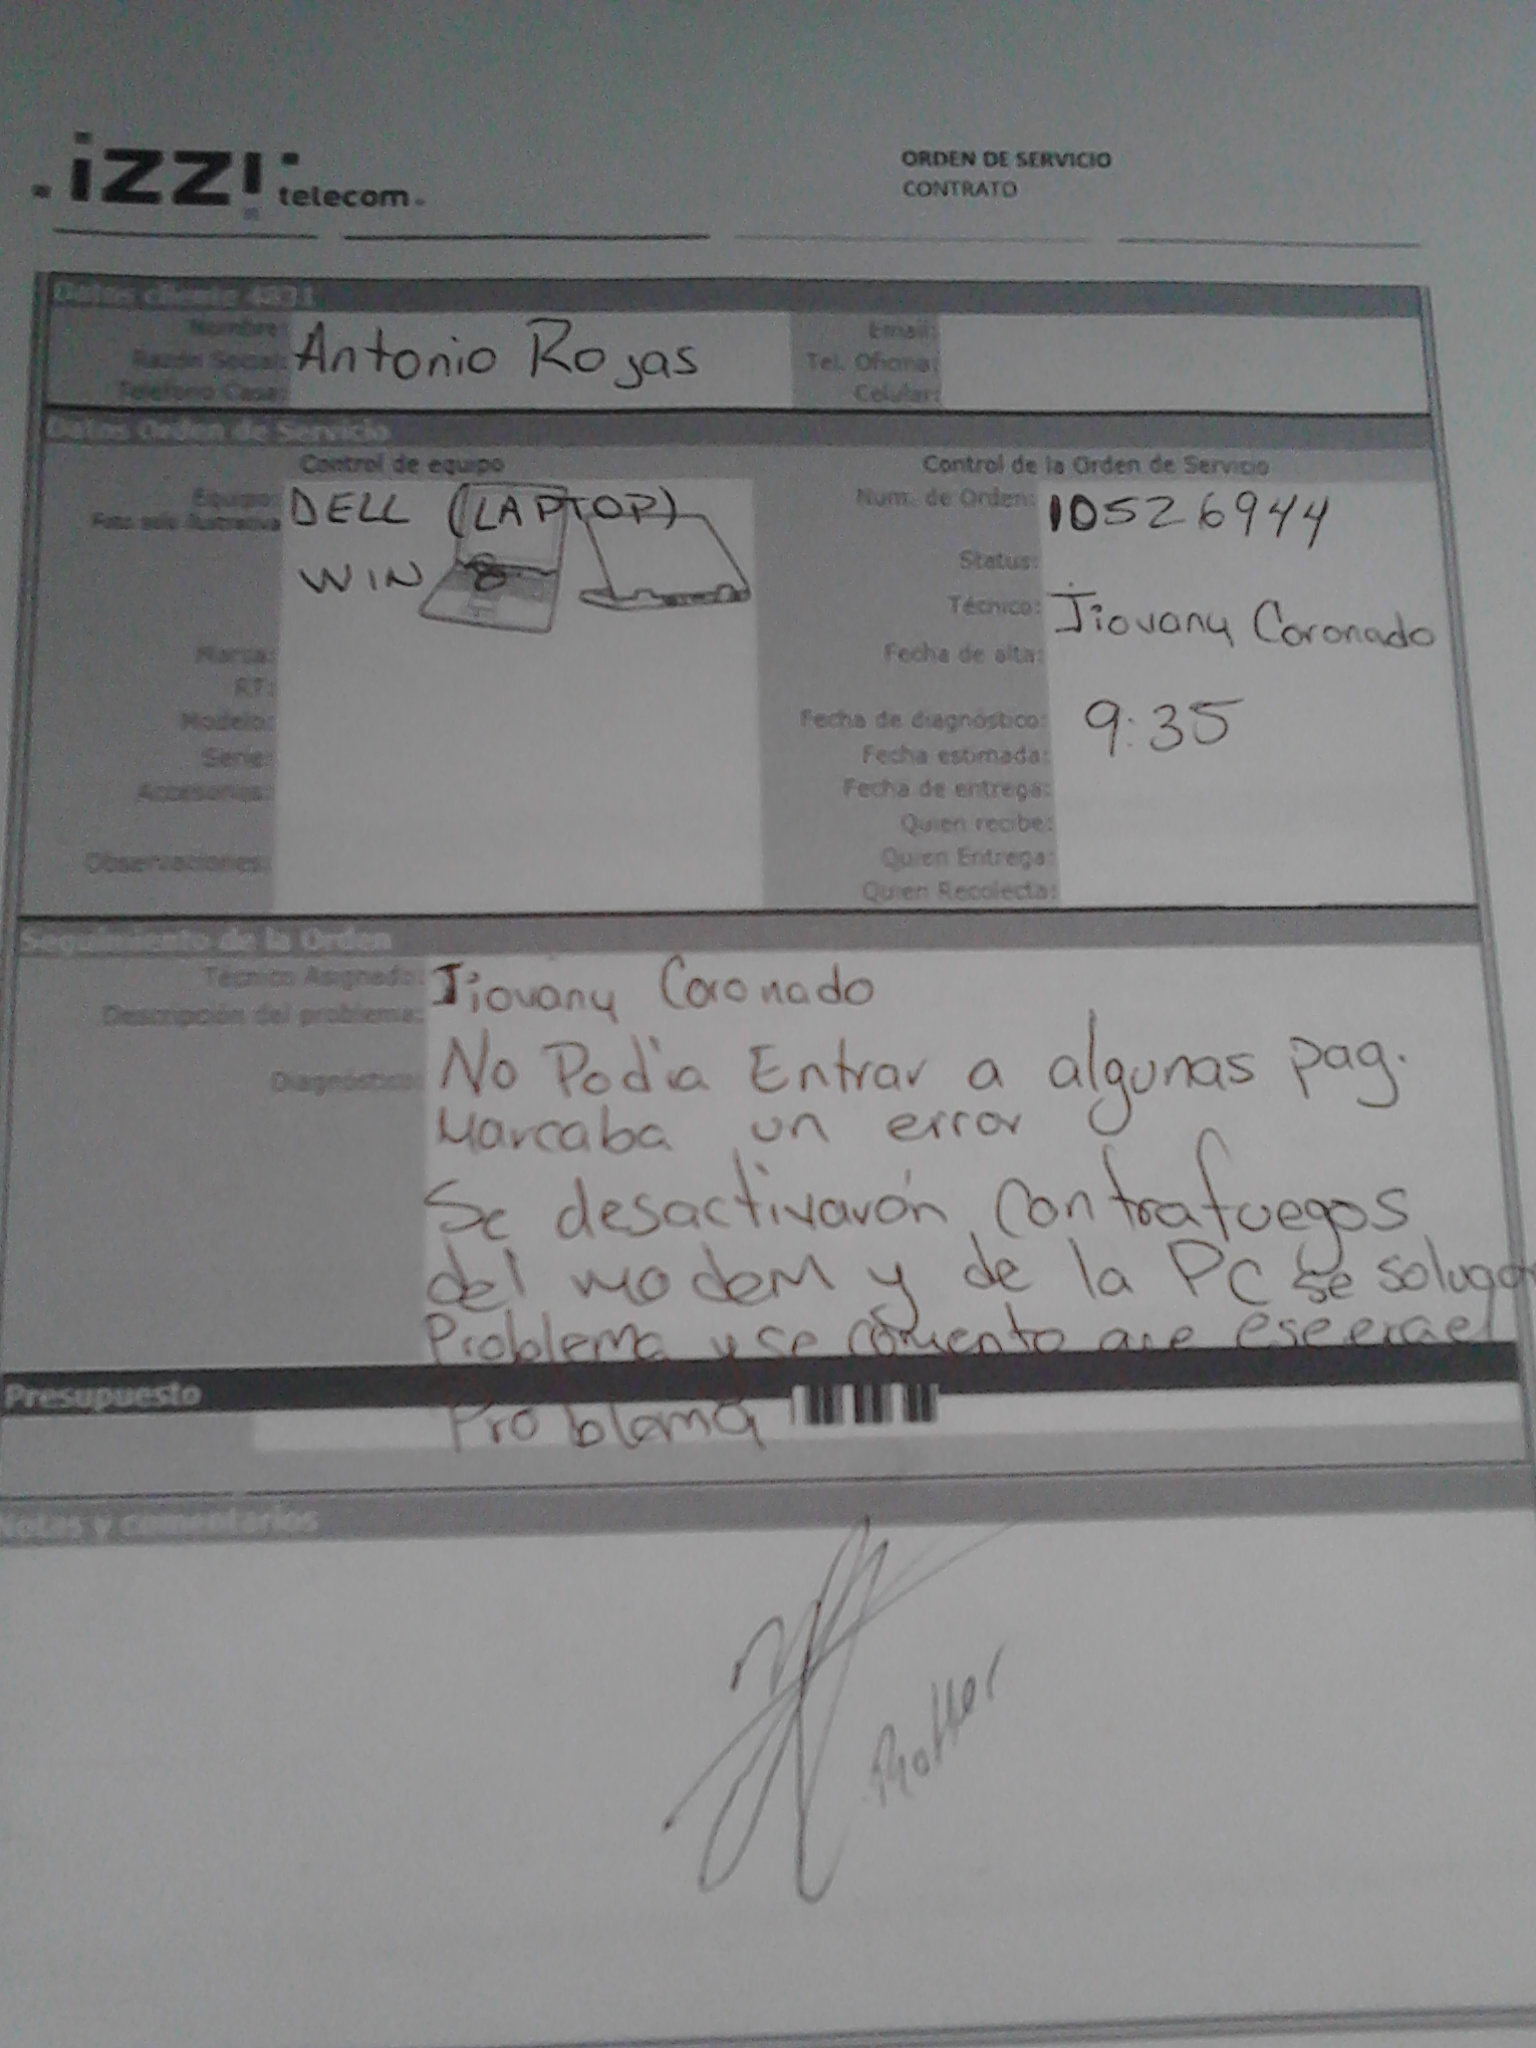 izzi telecom
ORDEN DE SERVICIO
CONTRATO
Datos cliente 4831
Nombre: Antonio Rojas
Razón Social:
Teléfono Casa:
Email:
Tel. Oficina:
Celular:
Datos Orden de Servicio
Control de equipo
Equipo: DELL (LAPTOP)
Foto solo ilustrativa
WIN 8
Marca:
RT:
Modelo:
Serie:
Accesorios:
Observaciones:
Control de la Orden de Servicio
Num. de Orden: 10526944
Status:
Técnico: Jiovany Coronado
Fecha de alta:
Fecha de diagnóstico: 9:35
Fecha estimada:
Fecha de entrega:
Quien recibe:
Quien Entrega:
Quien Recolecta:
Seguimiento de la Orden
Técnico Asignado: Jiovany Coronado
Descripción del problema:
Diagnóstico: No Podia Entrar a algunas pag.
Marcaba un error
Se desactivarón contrafuegos
del modem y de la PC se
Problema y se comento que ese era el
Presupuesto
Problema
Notas y comentarios